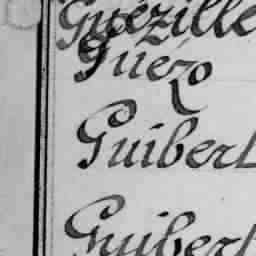 Guézille
Guézo
Guibert
Guibert